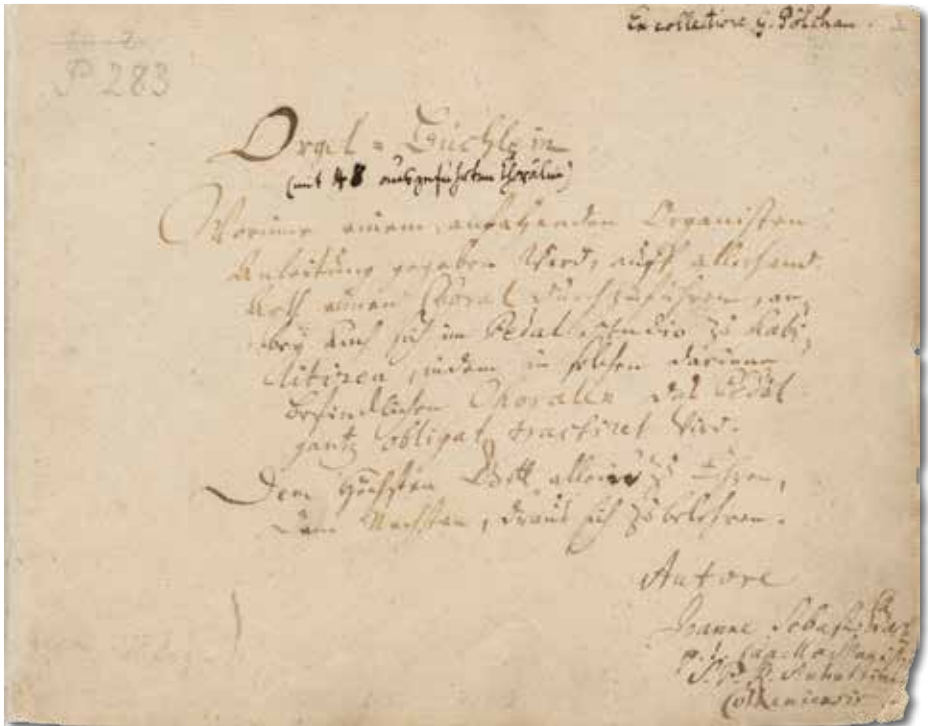 Ex collectione G. Pölchau.
P 283
Orgel = Büchlein
(mit 48 ausgeführten Chorälen)
Worinne einem anfahenden Organisten
Anleitung gegeben wird, auff allerhand
Arth einen Choral durchzuführen, an,
bey auch sich im Pedal studio zu habi,
litiren, indem in solchen darinne
befindlichen Choralen das Pedal
gantz obligat tractiret wird.
Dem Höchsten Gott allein zu Ehren,
Dem Nechsten, draus sich zu belehren.
Autore
Joanne Sebast: Bach
p. t. Capellae Magistri
S. P. R. Anhaltini
Cotheniensis